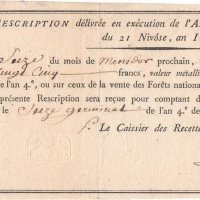 RESCRIPTION délivrée en exécution de l'A
du 21 Nivôse, an I
Seize du mois de Messidor prochain,
Vingt Cinq francs, valeur métalli
de l'an 4e, ou sur ceux de la vente des Forêts national
présente Rescription sera reçue pour comptant d
le Seize germinal de l'an 4e de
Le Caissier des Recette